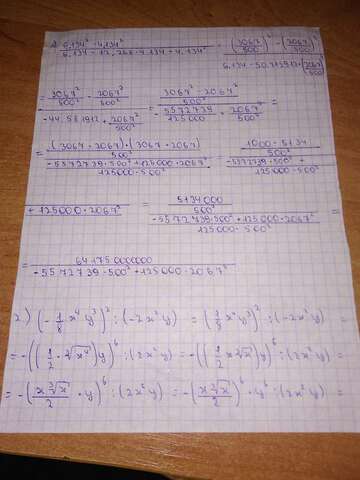 1) (6,134² - 4,134²) / (6,134 - 12,268 · 4,134 + 4,134²) = ((3067/500)² - (2067/500)²) / (6,134 - 50,715912 + (2067/500)²) =
= (3067²/500² - 2067²/500²) / (-44,581912 + 2067²/500²) = ((3067² - 2067²)/500²) / (-5572739/125000 + 2067²/500²) =
= ((3067 - 2067) · (3067 + 2067)/500²) / ((-5572739 · 500² + 125000 · 2067²)/(125000 · 500²)) = (1000 · 5134/500²) / ((-5572739 · 500² +
+ 125000 · 2067²)/(125000 · 500²)) = (5134000/500²) / ((-5572739 · 500² + 125000 · 2067²)/(125000 · 500²)) =
= 641750000000 / (-5572739 · 500² + 125000 · 2067²)
2) (-1/8 x⁴ y³)² : (-2x²y) = (1/8 x⁴ y³)² : (-2x²y) =
= -((1/2 · ∛x⁴) y)⁶ : (2x²y) = -((1/2 x ∛x) y)⁶ : (2x²y) =
= -(x ∛x / 2 · y)⁶ : (2x²y) = -(x ∛x / 2)⁶ · y⁶ : (2x²y) =